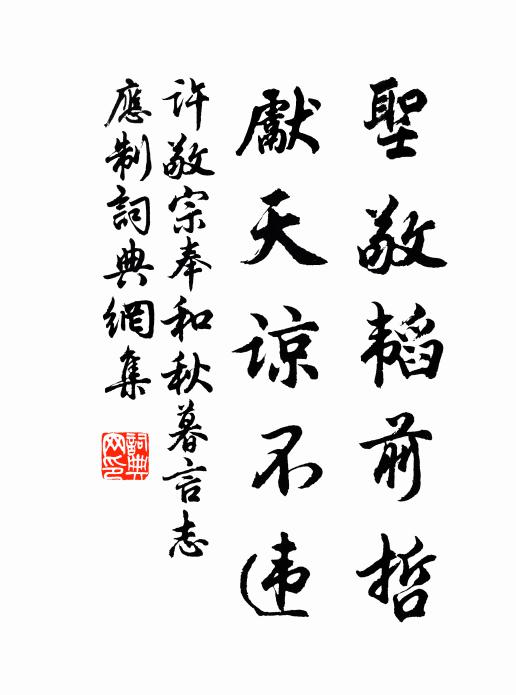 聖敬韬前哲
獻天谅不违
许敬宗奉和秋暮言志
應制詞典網集
詞典网印